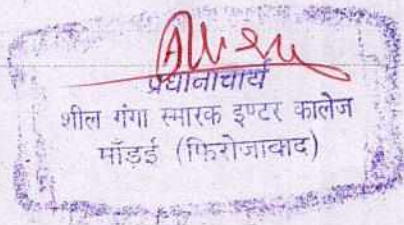 प्रधानाचार्य
शील गंगा स्मारक इण्टर कालेज
माँड़ई (फिरोजाबाद)